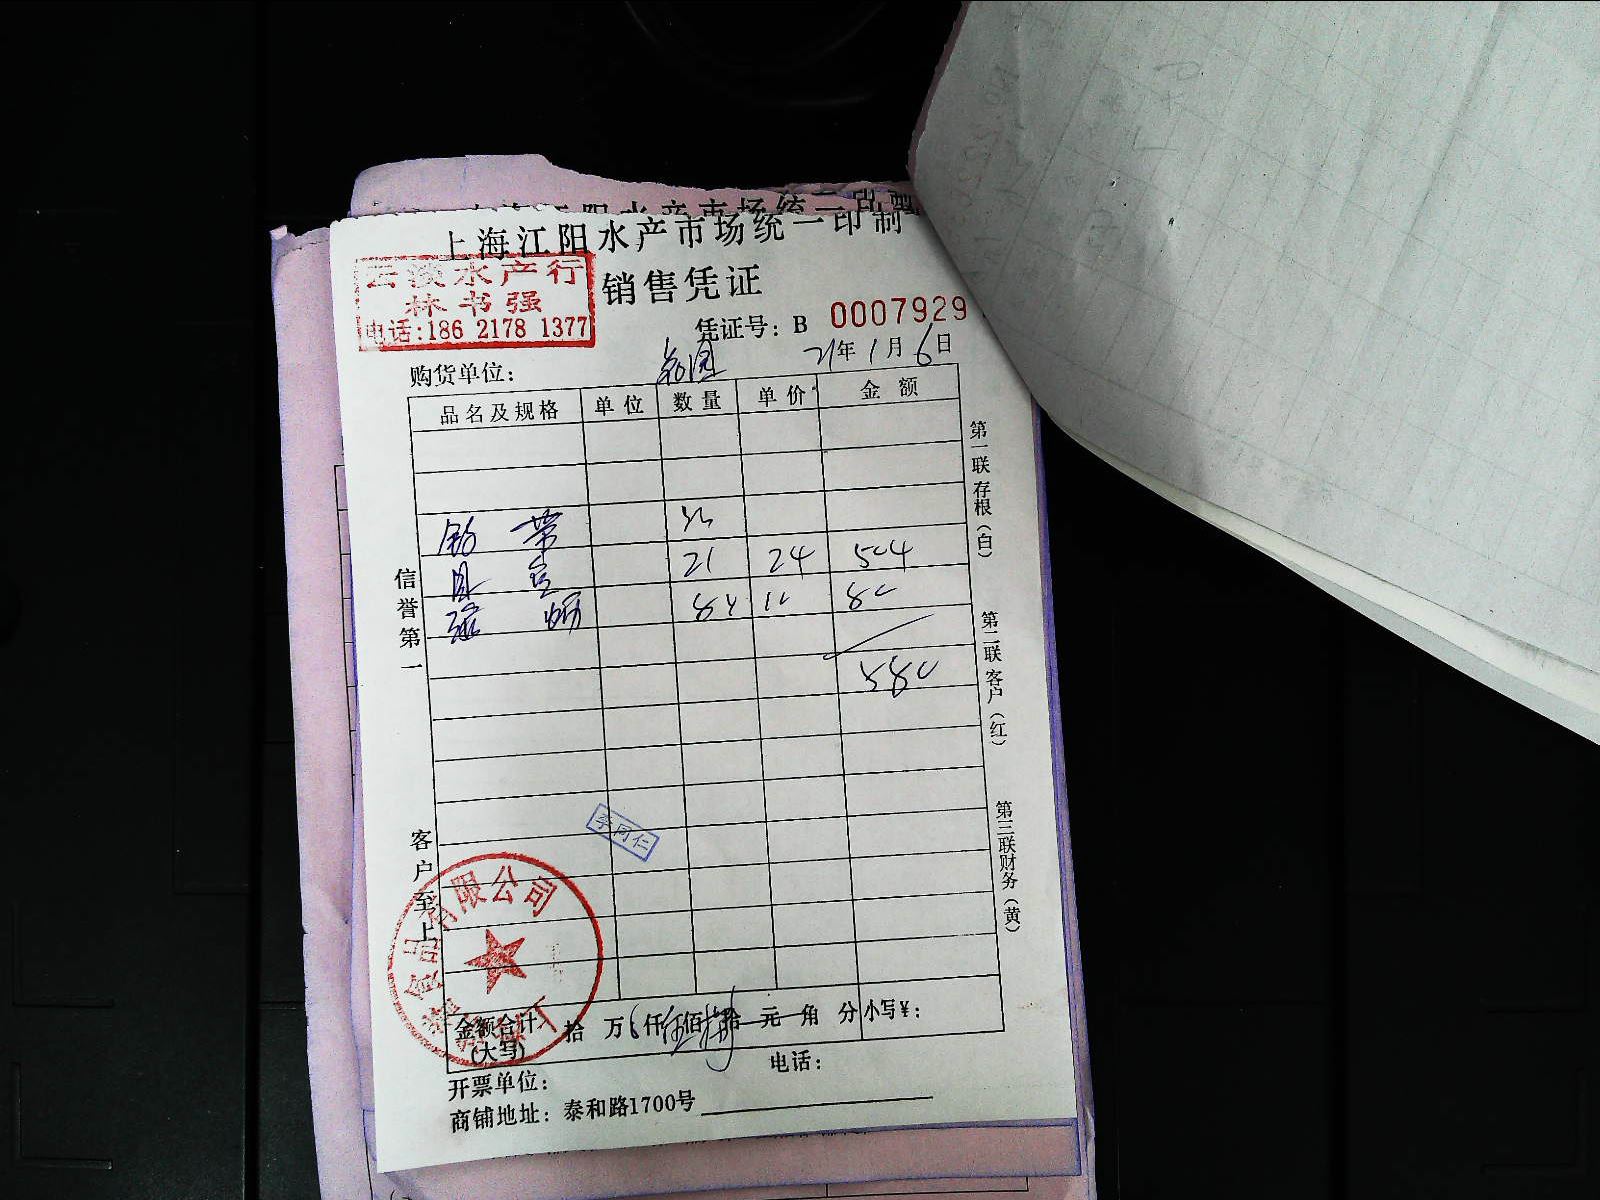 上海江阳水产市场统一印制
云淡水产行
林书强
电话:186 2178 1377
销售凭证
凭证号: B 0007929
21年1月6日
购货单位:
品名及规格 单位 数量 单价 金额
21 24 504
80
580
信誉第一
客户至上
第一联存根(白)
第二联客户(红)
第三联财务(黄)
李同仁
食品有限公司
金额合计 (大写) 拾 万 仟伍佰捌拾元角分 小写¥:
开票单位: 电话:
商铺地址: 泰和路1700号